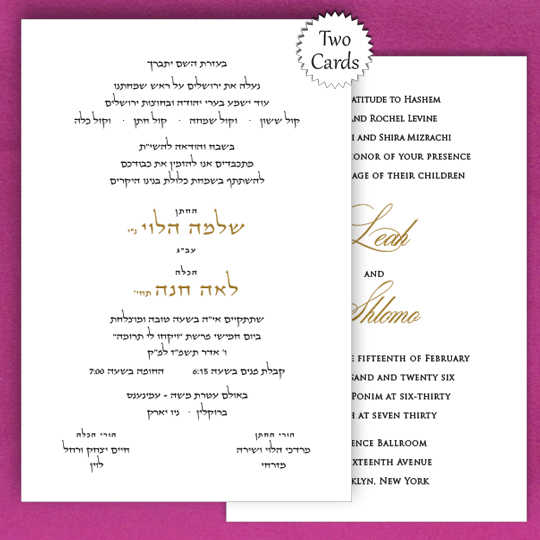 Two
Cards
בעזרת השם יתברך
נעלה את ירושלים על ראש שמחתנו
עוד ישמע בערי יהודה ובחוצות ירושלים
קול ששון · וקול שמחה · קול חתן · וקול כלה
בשבח והודאה להשי"ת
מתכבדים אנו להזמין את כבודכם
להשתתף בשמחת כלולת בנינו היקרים
החתן
שלמה הלוי ני"ו
עב"ג
הכלה
לאה חנה תחי'
שתתקיים אי"ה בשעה טובה ומוצלחת
ביום חמישי פרשת "ויקחו לי תרומה"
ו' אדר תשפ"ז לפ"ק
קבלת פנים בשעה 6:15 החופה בשעה 7:00
באולם עטרת משה -
ברוקלין · ניו יארק
הורי החתן
מרדכי הלוי ושירה
מזרחי
הורי הכלה
חיים יצחק ורחל
לוין
atitude to Hashem
and Rochel Levine
i and Shira Mizrachi
honor of your presence
age of their children
Leah
and
Shlomo
e fifteenth of February
sand and twenty six
Ponim at six-thirty
h at seven thirty
ence Ballroom
ixteenth Avenue
klyn, New York